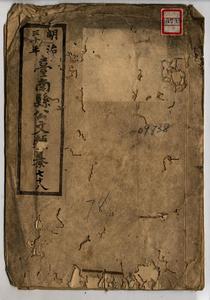 明治
三十年
臺南縣公文類纂七十八
09938